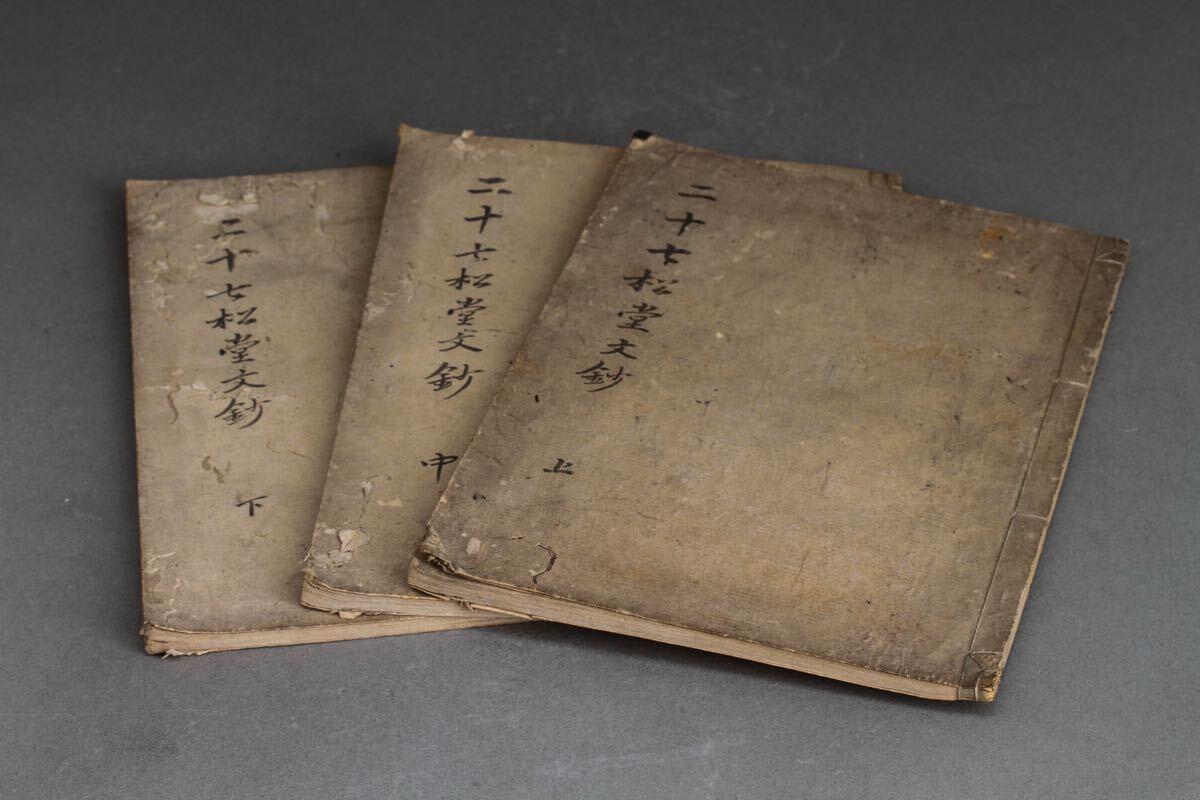 二十七松堂文鈔
上
二十七松堂文鈔
中
二十七松堂文鈔
下